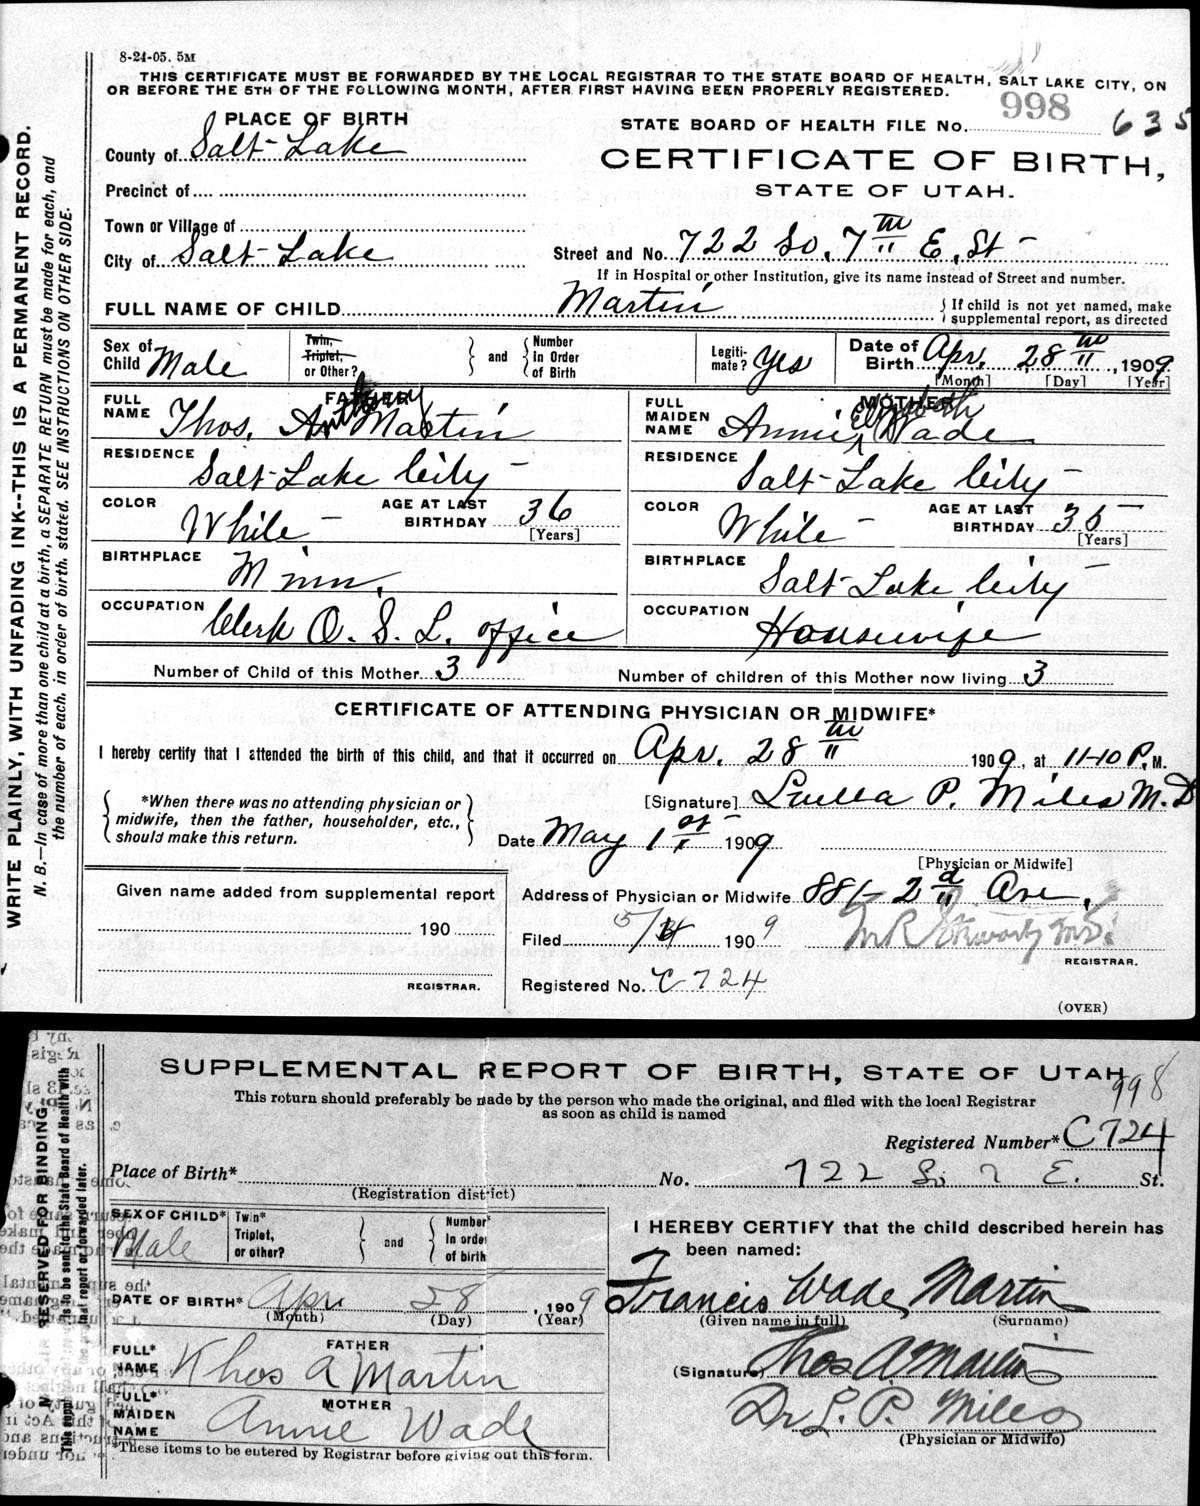 8-24-05. 5M
THIS CERTIFICATE MUST BE FORWARDED BY THE LOCAL REGISTRAR TO THE STATE BOARD OF HEALTH, SALT LAKE CITY, ON
OR BEFORE THE 5TH OF THE FOLLOWING MONTH, AFTER FIRST HAVING BEEN PROPERLY REGISTERED.
PLACE OF BIRTH
STATE BOARD OF HEALTH FILE No. 998 635
County of Salt Lake
CERTIFICATE OF BIRTH,
Precinct of
STATE OF UTAH.
Town or Village of
City of Salt Lake
Street and No. 722 So. 7th E. St
If in Hospital or other Institution, give its name instead of Street and number.
FULL NAME OF CHILD Martin
{If child is not yet named, make
supplemental report, as directed
Sex of Child Male
Twin, Triplet, or Other?
} and {
Number in Order of Birth
Legitimate? Yes
Date of Birth Apr. 28th, 1909
[Month] [Day] [Year]
FATHER
FULL NAME Thos. Anthony Martin
RESIDENCE Salt Lake City
COLOR White
AGE AT LAST BIRTHDAY 36
[Years]
BIRTHPLACE Minn.
OCCUPATION Clerk O. S. L. office
MOTHER
FULL MAIDEN NAME Annie Elizabeth Wade
RESIDENCE Salt Lake City
COLOR White
AGE AT LAST BIRTHDAY 35
[Years]
BIRTHPLACE Salt Lake City
OCCUPATION Housewife
Number of Child of this Mother 3
Number of children of this Mother now living 3
CERTIFICATE OF ATTENDING PHYSICIAN OR MIDWIFE*
I hereby certify that I attended the birth of this child, and that it occurred on Apr. 28th 1909, at 11-10 P. M.
{*When there was no attending physician or
midwife, then the father, householder, etc.,
should make this return.}
[Signature] Luella P. Miles M. D
Date May 1st 1909
[Physician or Midwife]
Given name added from supplemental report
190
REGISTRAR.
Address of Physician or Midwife 881- 2d Ave.
Filed 5/ 1909
REGISTRAR.
Registered No. C724
(OVER)
WRITE PLAINLY, WITH UNFADING INK--THIS IS A PERMANENT RECORD.
N. B.—In case of more than one child at a birth, a SEPARATE RETURN must be made for each, and
the number of each, in order of birth, stated. SEE INSTRUCTIONS ON OTHER SIDE.
SUPPLEMENTAL REPORT OF BIRTH, STATE OF UTAH
998
This return should preferably be made by the person who made the original, and filed with the local Registrar
as soon as child is named
Registered Number* C724
Place of Birth* No. 722 So. 7 E. St.
(Registration district)
SEX OF CHILD* Male
Twin* Triplet, or other?
} and {
Number* In order of birth
DATE OF BIRTH* Apr 28, 1909
(Month) (Day) (Year)
FATHER
FULL* NAME Thos A Martin
MOTHER
FULL* MAIDEN NAME Annie Wade
*These items to be entered by Registrar before giving out this form.
I HEREBY CERTIFY that the child described herein has
been named:
Francis Wade Martin
(Given name in full) (Surname)
(Signature) Thos A. Martin
Dr L. P. Miles
(Physician or Midwife)
RESERVED FOR BINDING.